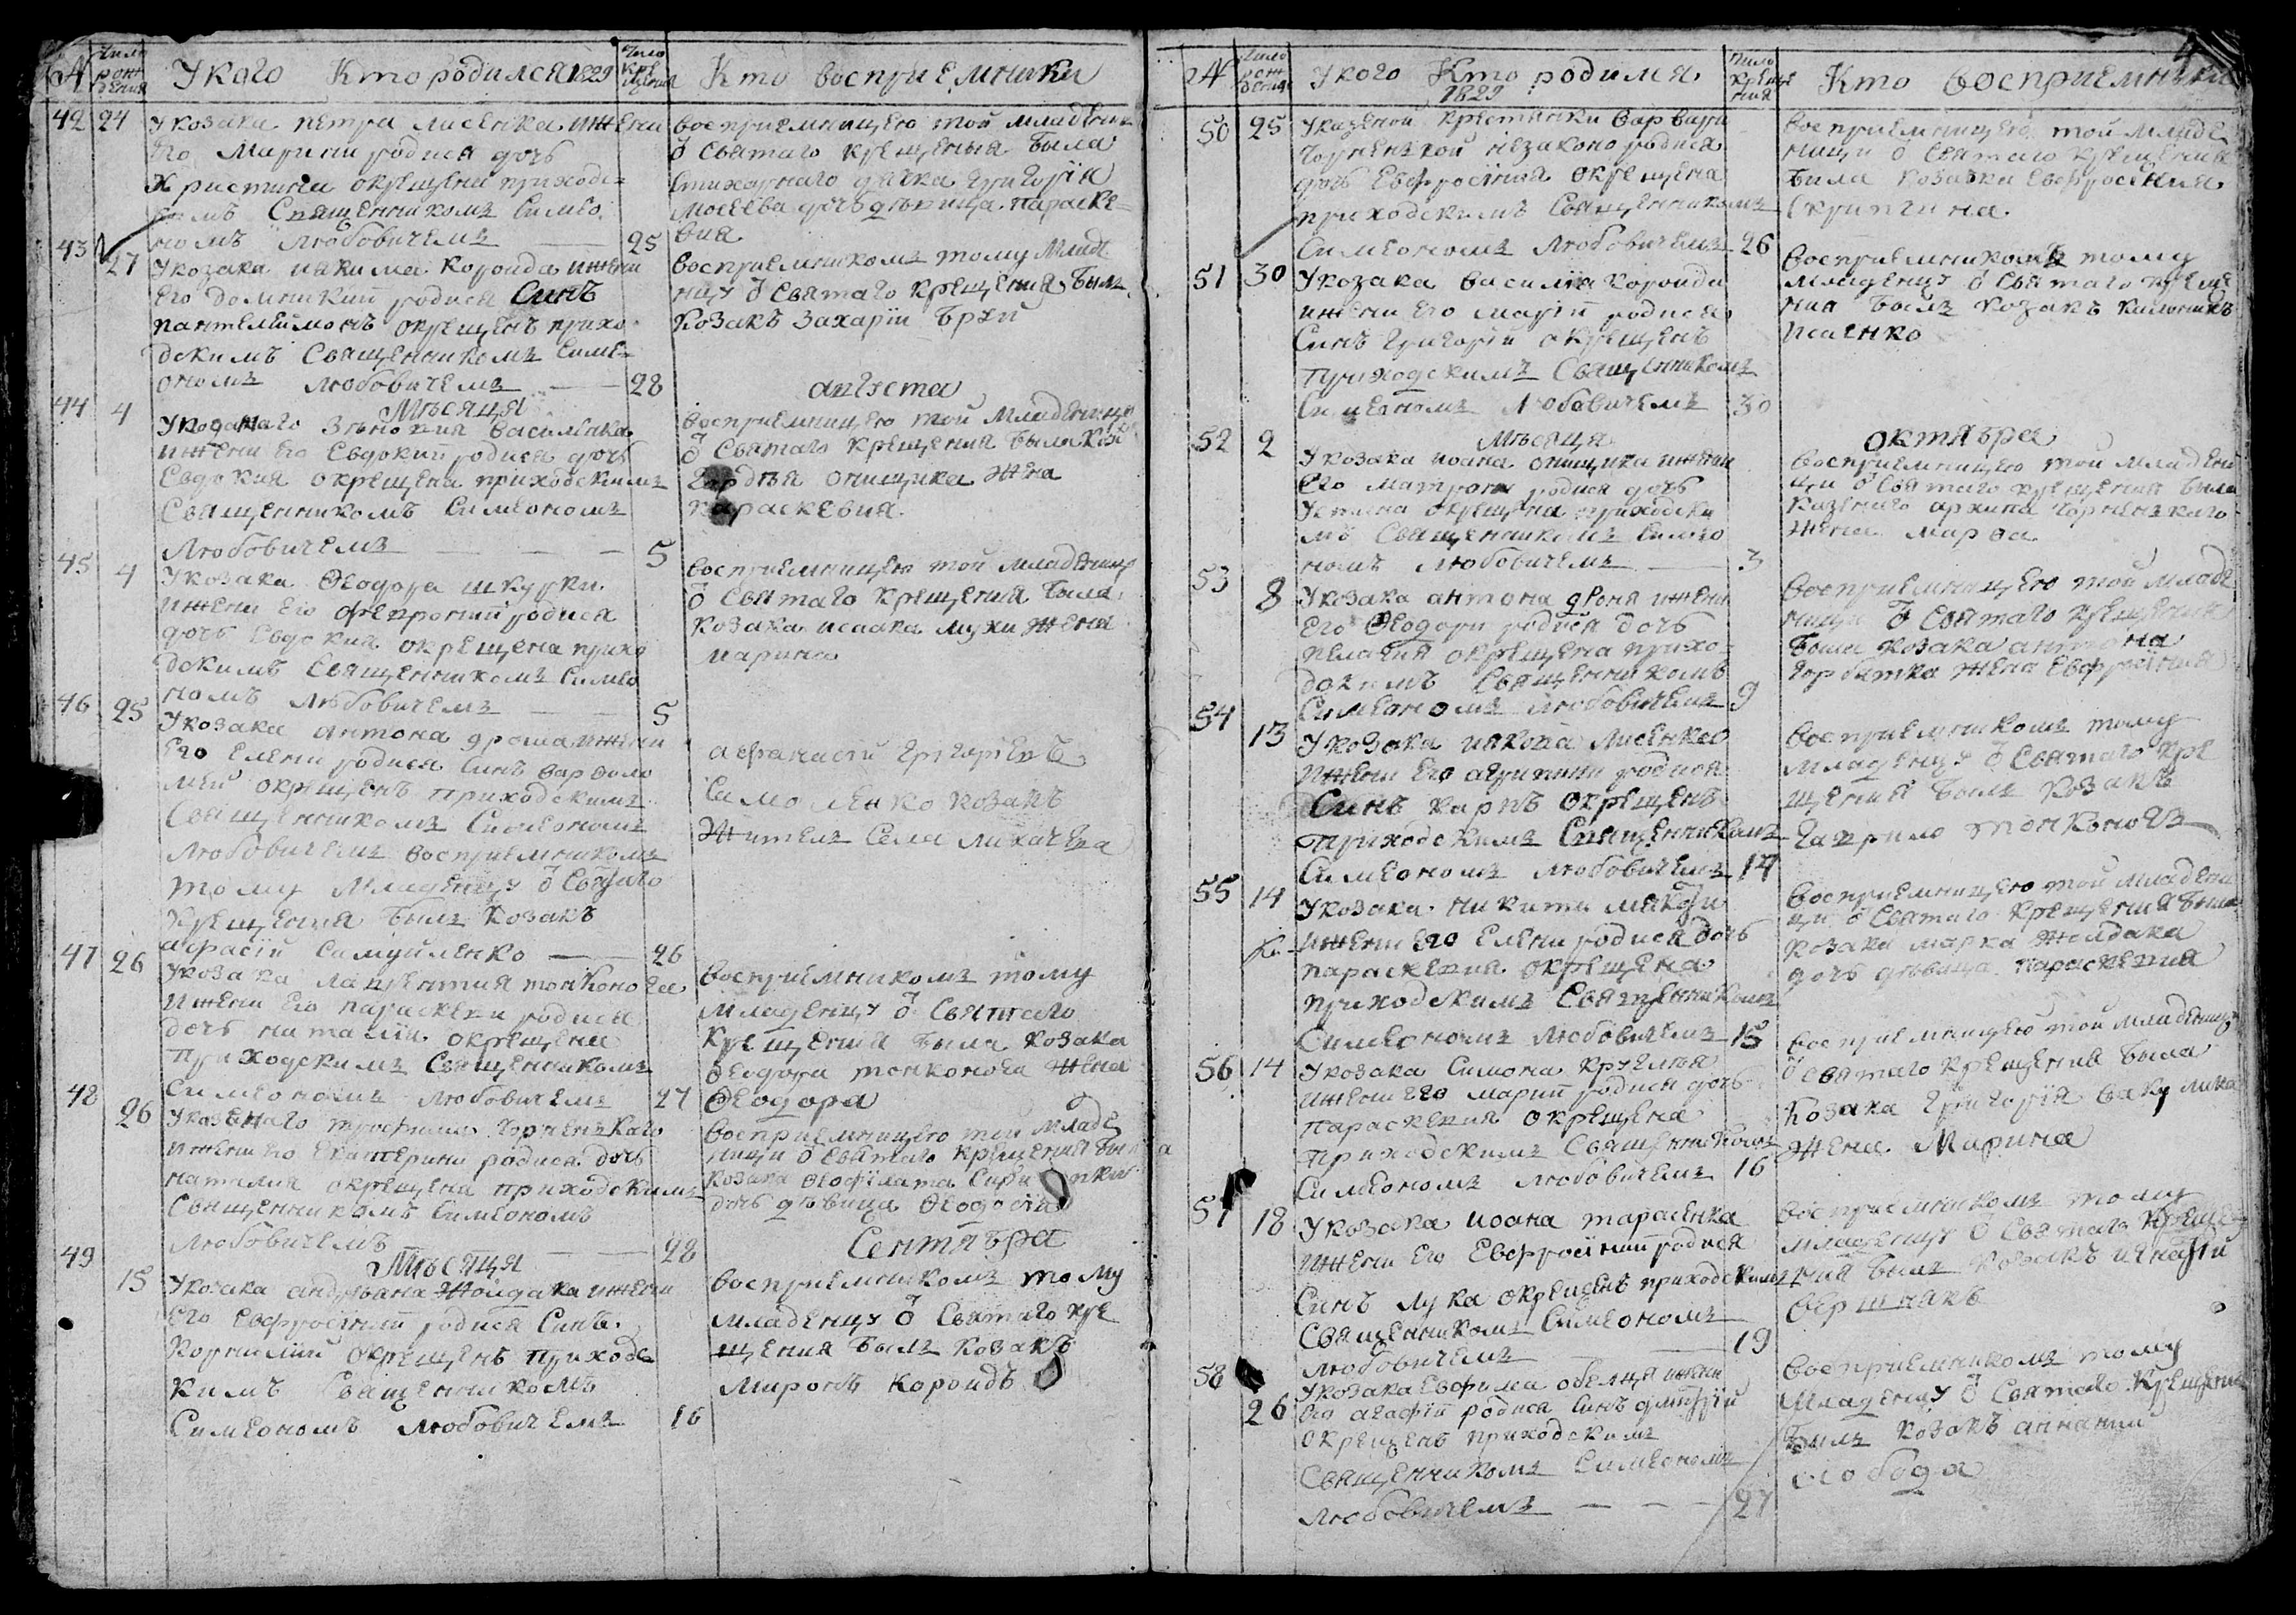 № Число рождения У кого Кто родился 1829 Число крещения Кто восприемники
42 24 У козака петра лисенка и жени
его Марини родися дочь
Христина окрещена приходс=
кимъ Священникомъ Симео
номъ Любовичемъ — 25
восприемницею той младениц
ѿ Святаго крещения была
стихарнаго дячка григорія
Мосеева дочь девица параске=
вия
43 27 У козака иякима короида и жени
его домникии родися Синъ
пантелеимонъ окрещенъ прихо
дскимъ Священникомъ Симе=
ономъ Любовичемъ — 28
восприемникомъ тому Младе
нцу ѿ Святаго крещения былъ
козакъ захарий
Мѣсяца августа
44 4 василенка
и жени его Евдокии родися дочь
Евдокия окрещена приходскимъ
Священникомъ Симеономъ
Любовичемъ — — — 5
восприемницею той Младениц
ѿ Святаго крещения была
онищика жена
параскевия
45 4 У козака Ѳеодора шкурки
и жени его родися
дочь Евдокия окрещена прихо
дскимъ Священникомъ Симео
номъ Любовичемъ — 5
восприемницею той младениц
ѿ Святаго крещения была
козака исаака мухи жена
марина
46 25 У козака антона дрона и жени
его Елени родися Синъ варфоло
мей окрещенъ приходскимъ
Священникомъ Симеономъ
Любовичемъ восприемникомъ
тому Младенцу ѿ Святаго
Крещения былъ козакъ
афасій Самуйленко — 26
афанасій григориевъ
козакъ
житель села лихачева
47 26 У козака лаврентия тонконога
и жени его параскеви родися
дочь наталія окрещена
приходскимъ Священникомъ
Симеономъ Любовичемъ 27
восприемникомъ тому
младенцу ѿ Святаго
Крещения была козака
Ѳеодора тонконога жена
Ѳеодора
48 26 У казенаго трофима чорненкаго
и жени его Екатерини родися дочь
наталия окрещена приходскимъ
Священникомъ Симеономъ
Любовичемъ — 28
восприемницею той младе
ници ѿ Святаго крещения была
козака Ѳеофилата
дочь девица Ѳеодосія
Мѣсяца Сентября
49 15 У козака андриана Жолдака и жени
его Евфросинии родися Синъ
Корнилій окрещенъ приходс
кимъ Священникомъ
Симеономъ Любовичемъ 16
восприемникомъ тому
младенцу ѿ Святаго кре
щения былъ козакъ
миронъ короидъ
№ Число рождения У кого Кто родился 1829 Число крещения Кто восприемники
50 25 У казеной крестянки варвари
чорненкой незаконо родися
дочь Евфросіния окрещена
приходскимъ Священникомъ
Симеономъ Любовичемъ 26
восприемницею той младе
ници ѿ Святаго крещения
была козачка Евфросиния
Скрипчина
51 30 У козака василія короида
и жени его маріи родися
Синъ григорій окрещенъ
приходскимъ Священникомъ
Симеономъ Любовичемъ 30
восприемникомъ тому
младенцу ѿ Святаго креще
ния былъ козакъ
исаенко
Мѣсяца октября
52 2 У козака иоана онищика и жени
его матрони родися дочь
Устина окрещена приходски
мъ Священникомъ Симео
номъ Любовичемъ — 3
восприемницею той младени
ци ѿ Святаго крещения была
казенаго архипа чорненкаго
жена марѳа
53 8 У козака антона дроня и жени
его Ѳеодори родися дочь
пелагия окрещена прихо=
дскимъ Священникомъ
Симеономъ Любовичемъ 9
восприемницею той младе
ници ѿ Святаго крещения
была козака антона
горбатка жена Евфросиния
54 13 У козака иякова лисенка
и жени его агрипини родися
Синъ карпъ окрещенъ
приходскимъ Священникомъ
Симеономъ Любовичемъ 14
восприемникомъ тому
младенцу ѿ Святаго кре
щения былъ козакъ
гаврило тонконогъ
55 14 У козака никити
и жени его Елени родися дочь
параскевия окрещена
приходскимъ Священникомъ
Симеономъ Любовичемъ 15
восприемницею той младени
ци ѿ Святаго Крещения была
козака марка жолдака
дочь девица параскевия
56 14 У козака Симона
и жени его марии родися дочь
параскевия окрещена
приходскимъ Священникомъ
Симеономъ Любовичемъ 16
восприемницею той младениц
ѿ Святаго крещения была
козака григорія вакулика
жена Марина
57 18 У козака иоана тарасенка
и жени его Евфросинии родися
Синъ лука окрещенъ приходскимъ
Священникомъ Симеономъ
Любовичемъ — 19
восприемникомъ тому
младенцу ѿ Святаго креще
ния былъ козакъ игнатій
вершнякъ
58 26 У козака Евфима обелця и жени
его агафии родися Синъ дмитрій
окрещенъ приходскимъ
Священникомъ Симеономъ
Любовичемъ — — — 27
восприемникомъ тому
младенцу ѿ Святаго Крещения
былъ козакъ ананий
слобода